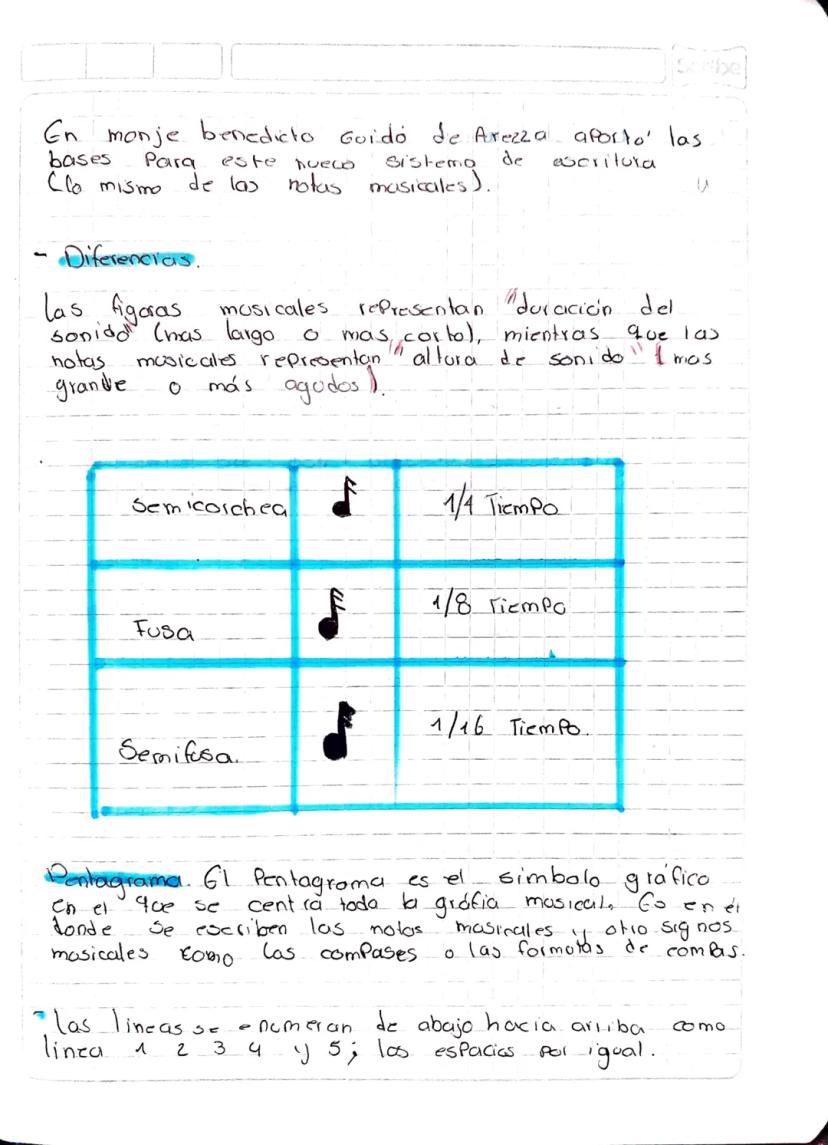 Scribe
En monje benedicto Guido de Arezza aporto' las
bases Para este nuevo sistema de escritura
(lo mismo de las notas musicales).
- Diferencias.
las figuras musicales rePresentan "duración del
sonido" (mas largo o mas corto), mientras que las
notas musicales representan "altura de sonido" (mas
grande o más agudos).
Semicorchea 1/4 Tiempo
Fusa 1/8 Tiempo
Semifusa. 1/16 Tiempo.
Pentagrama. El Pentagrama es el simbolo gráfico
en el que se centra toda la gráfia musical. Es en él
donde se escriben las notas musicales y otro signos
musicales como las comPases o las formotas de compas.
- las lineas se enumeran de abajo hacia arriba como
linea 1 2 3 4 y 5; los espacios por igual.